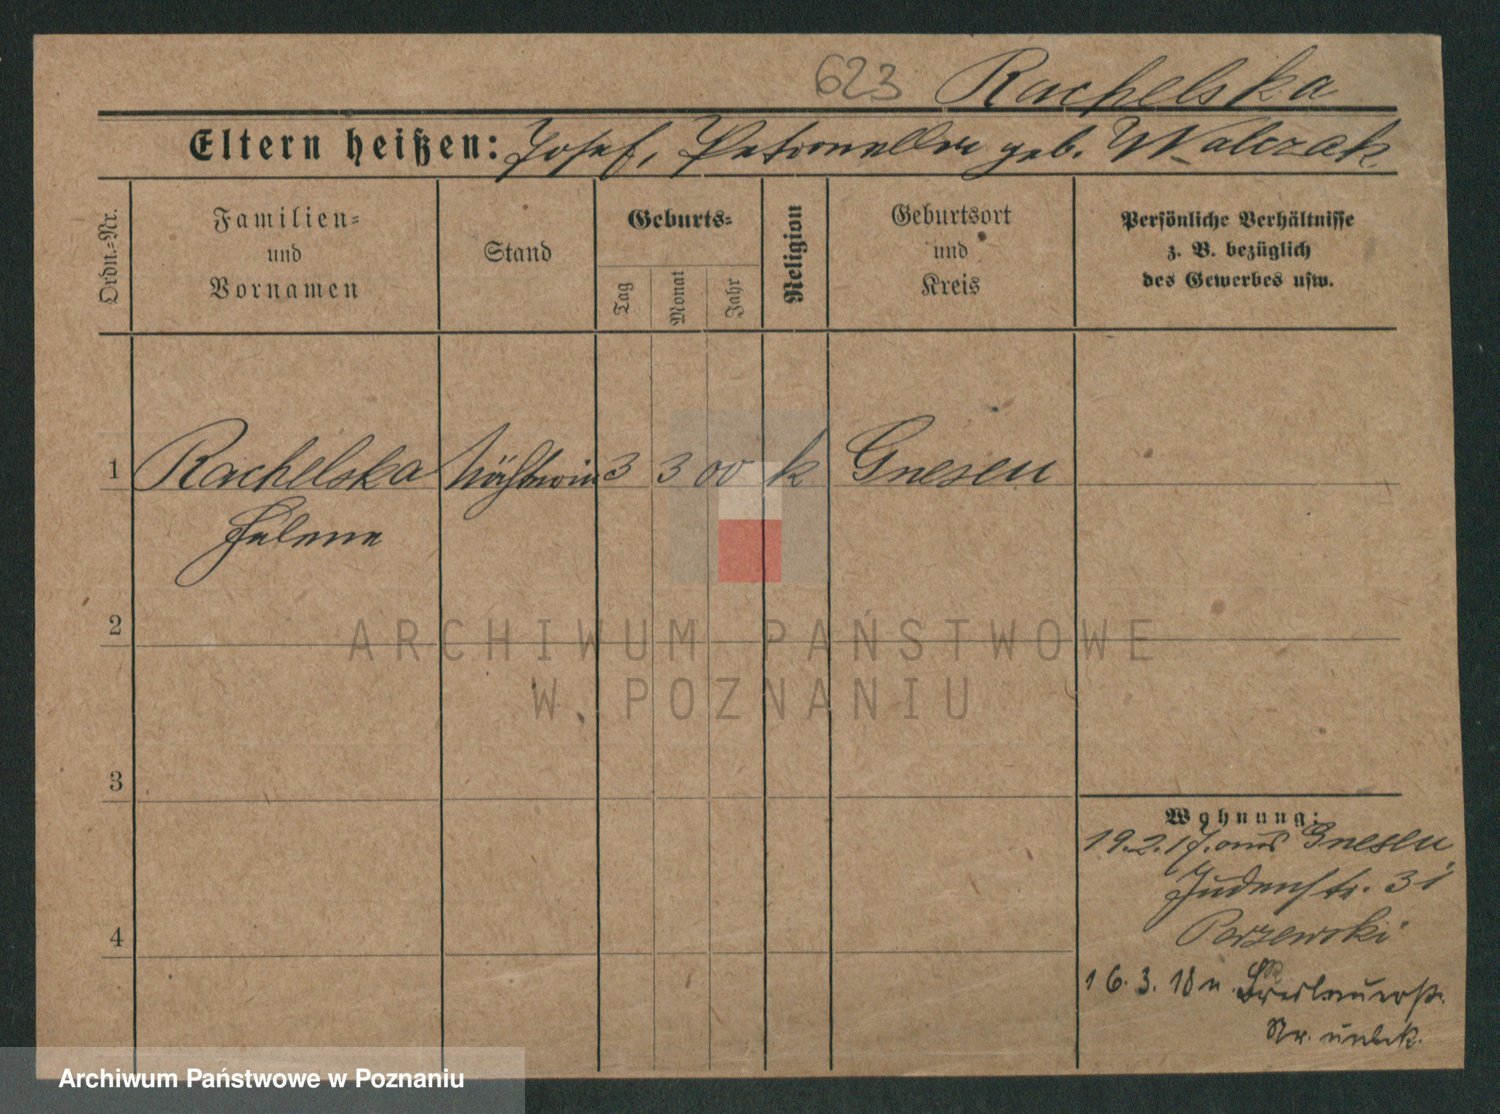 623 Rachelska
Eltern heißen: Josef, Petronella geb. Walczak
Ordn.-Nr.
Familien-
und
Vornamen
Stand
Geburts-
Tag
Monat
Jahr
Religion
Geburtsort
und
Kreis
Persönliche Verhältnisse
z. B. bezüglich
des Gewerbes usw.
1 Rachelska Nähterin 3 3 00 k Gnesen
Helene
2
3
4
Wohnung:
19.2.17. aus Gnesen
Judenstr. 31
Porzewski
16.3.18 n. Breslauerstr.
Nr. unbek.
ARCHIWUM PAŃSTWOWE
W POZNANIU
Archiwum Państwowe w Poznaniu